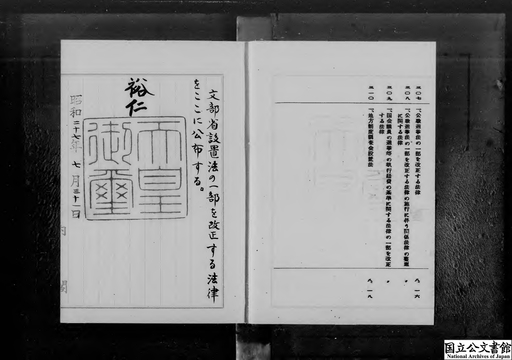 三〇七 公職選挙法の一部を改正する法律
三〇八 公職選挙法の一部を改正する法律の施行に伴う関係法律の整理
に関する法律
三〇九 国会議員の選挙等の執行経費の基準に関する法律の一部を改正
する法律
三一〇 地方制度調査会設置法
八、一六
八、一八
文部省設置法の一部を改正する法律
をここに公布する。
裕仁
天皇
御璽
昭和二十七年七月三十一日
内閣
国立公文書館
National Archives of Japan